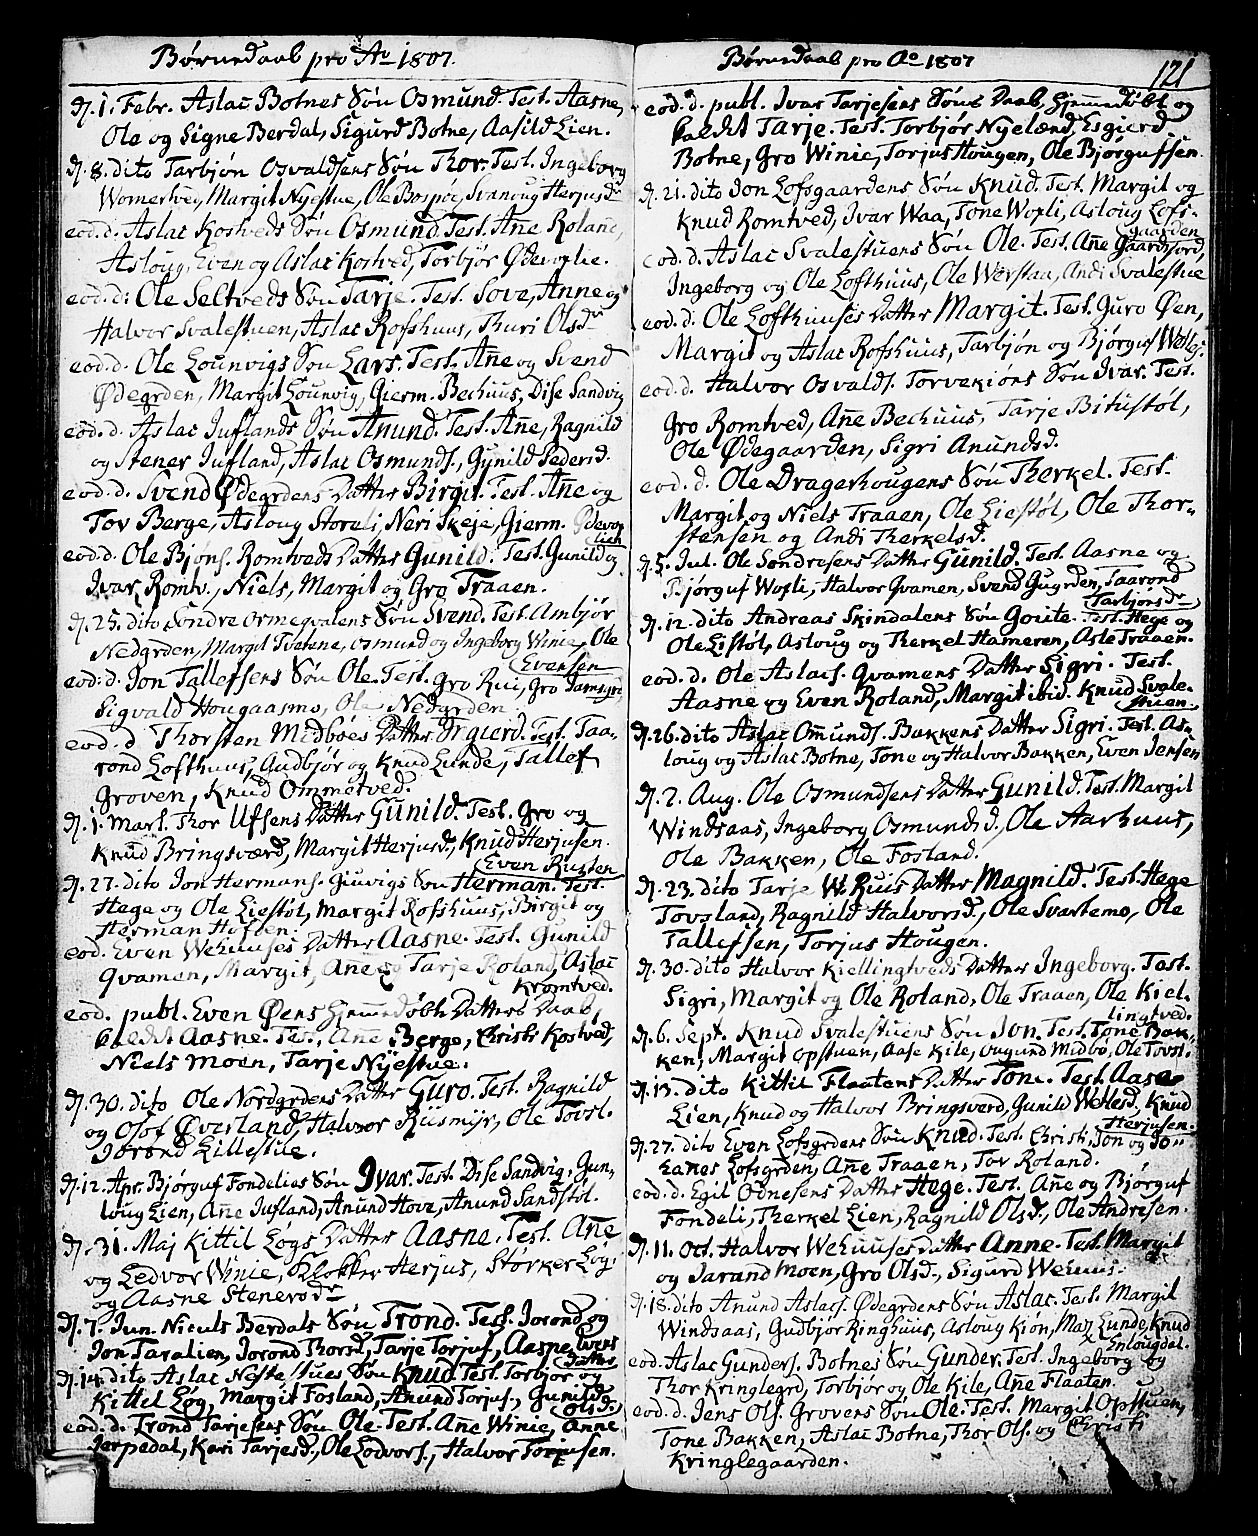 Børnedaab pro Ao 1807.
D. 1. Febr. Aslac Botnes Søn Osmund. Test. Aasne,
Ole og Signe Berdal, Sigurd Botne, Aasild Lien.
D. 8. dito Tarbjøn Osvaldsens Søn Thor. Test. Ingeborg
Womertvei, Margit Nyestue, Ole Bospoe, Svanoug Herjusdr
eod. d. Aslac Kostveds Søn Osmund. Test. Añe Roland,
Asloug, Even og Aslac Kostved, Torbjør Ødevoplie.
eod. d: Ole Seltveds Søn Tarje. Test. Tove, Anne og
Halvor Svalestuen, Aslac Rofshuus, Thuri Olsdr
eod. d. Ole Lounvigs Søn Lars. Test. Añe og Svend
Ødegrden, Margit Lounvig, Gierm. Bechuus, Dise Sandvig
eod. d. Aslac Juflands Søn Anund. Test. Añe, Ragnild
og Stener Jufland, Aslac Osmunds., Gunild Pedersd.
eod. d. Svend Ødegrdens Datter Birgit. Test. Añe og
Tov Berge, Asloug Storali, Neri Skeje, Gierm. Ødevop
lien
eod. d. Ole Bjøns. Romtveds Datter Gunild. Test. Gunild og
Ivar Romtv., Niels, Margit og Gro Traaen.
D. 25. dito Søndre Ormeqvalens Søn Svend. Test. Ambjør
Nedgrden, Margit Tvetene, Osmund og Ingeborg Winie, Ole
Evensen
eod: d. Jon Tallefsens Søn Ole. Test. Gro Rui, Gro Jamsgrd,
Sigvald Hougaasmo, Ola Nedgrden.
eod. d Thorsten Midboes Datter Irgierd. Test. Taa-
rond Lofthuus, Gudbjør og Knud Lunde, Tallef
Groven, Knud Ommetved.
D. 1. Mart. Thor Ufsens Datter Gunild. Test. Gro og
Knud Bringsværd, Margit Herjusd., Knud Herjusen.
Even Rusten
D. 27. dito Jon Hermans. Giuvigs Søn Herman. Test.
Hege og Ole Liestøl, Margit Rofshuus, Birgit og
Herman Hoften.
eod. Even Wehuuses Datter Aasne. Test. Gunild
Qvamen, Margit, Añe og Tarje Roland, Aslac
Kromtved.
eod. publ. Even Øens Hjemmedøbte Datters Daab,
kaldet Aasne. Test. Añe Berge, Christi Kostved,
Niels Moen, Tarje Nyestue.
D. 30. dito Ole Nordgrdens Datter Guro. Test. Ragnild
og Olof Øverland, Halvor Riismyr, Ole Tovst.
Jorond Lillestue.
D. 12. Apr. Bjørguf Fondelies Søn Ivar. Test. Dise Sandvig, Gun-
loug Lien, Añe Jufland, Anund Hove, Anund Sandstøl.
D. 31. Maj Kittil Løgs Datter Aasne. Test. Añe
og Ledvor Winie, Klokker Herjus, Størker Løg
og Aasne Stenersdr
D. 7. Jun. Niculs Berdals Søn Trond. Test. Jorond og
Jon Taralien, Jorond Thorsd., Tarje Torjus., Aasne Ivers
Datter
D. 14. dito Aslac Nestestues Søn Knud. Test. Torbjør og
Kittel Løg, Margit Fosland, Anund Torjus., Gunild
Olsd.
eod. d. Trond Tarjesens Søn Ole. Test. Añe Winie, Anne
Jerpedal, Kari Tarjesd., Ole Lodvors., Halvor Torjusen.
Børnedaab pro Ao 1807
121
eod. d. publ. Ivar Tarjesens Søns Daab, Hjemmedøbt og
kaldet Tarje. Test. Torbjør Nyelænd, Esgierd
Botne, Gro Winie, Torjus Hougen, Ole Bjørgufsen.
D. 21. dito Jon Lofsgaardens Søn Knud. Test. Margit og
Knud Romtved, Ivar Waa, Tone Woxli, Asloug Lofs-
gaarden
eod. d. Aslac Svalestuens Søn Ole. Test. Añe Gaardsjord,
Ingeborg og Ole Lofthuus, Ole Werstaa, Andi Svalestue
eod. d: Ole Lofthuuses Datter Margit. Test. Guro Øen,
Margit og Aslac Rofshuus, Tarbjøn og Bjørguf Wetles.
eod. d. Halvor Osvalds. Torvekiøns Søn Ivar. Test.
Gro Romtved, Añe Bechuus, Tarje Bitustøl,
Ole Ødegaarden, Sigri Anundsd.
eod. d. Ole Dragerhougens Søn Therkel. Test.
Margit og Niels Traaen, Ole Liestøl, Ole Thor-
stensen og Andi Therkelsd.
D. 5. Jul. Ole Søndresens Datter Gunild. Test. Aasne og
Bjørguf Woxli, Halvor Qvamen, Svend Gugrden, Taarond
Tarbjørsdr
D. 12. dito Andreas Skindalens Søn Goute. Test. Hege og
Ole Listøl, Asloug og Therkel Hameren, Asle Traaen.
eod. d. Ole Aslacs. Qvamens Datter Sigri. Test.
Aasne og Even Roland, Margit ibid. Knud Svale-
stuen.
D. 26. dito Aslac Omunds. Bakkens Datter Sigri. Test. As-
loug og Aslac Botne, Tone og Halvor Bakken, Even Jensen
D. 2. Aug. Ole Osmundsens Datter Gunild. Test. Margit
Windsaas, Ingeborg Osmundsd., Ole Aarhuus,
Ole Bakken, Ole Fosland.
D. 23. dito Tarje W. Ruis Datter Magnild. Test. Hege
Tovsland, Ragnild Halvorsd., Ole Svartemo, Ole
Tallefsen, Torjus Hougen.
D. 30. dito Halvor Kiellingtveds Datter Ingeborg. Test.
Sigri, Margit og Ole Roland, Ole Traaen, Ole Kiel-
lingtved.
D. 6. Sept. Knud Svalestuens Søn Jon. Test. Tone Bak-
ken, Margit Opstuen, Aase Kile, Ougund Midbø, Ole Tovst.
D. 13. dito Kittil Flaatens Datter Tone. Test. Aase
Lien, Knud og Halvor Bringsverd, Gunild Wetlesd., Knud
Herjusen.
D. 27. dito Even Lofsgrdens Søn Knud. Test. Christi, Jon og Jo-
hanes Lofsgrden, Añe Traaen, Tov Roland.
eod. d. Egil Odnesens Datter Hege. Test. Añe og Bjørguf
Fondeli, Therkel Lien, Ragnild Olsd., Ole Andresen.
D. 11. Oct. Halvor Wehuuses Datter Anne. Test. Margit
og Jarand Moen, Gro Olsd., Sigurd Wehuus.
D. 18. dito Anund Aslacs. Ødegrdens Søn Aslac. Test. Margit
Windsaas, Gudbjør Ringhuus, Asloug Kion, Maij Lunde, Knud
Enlougdal.
eod. Aslac Gunders. Botnes Søn Gunder. Test. Ingeborg og
Thor Kringlegrd, Torbjør og Ole Kile, Añe Flaaten.
eod. d. Jens Ols. Grovens Søn Ole. Test. Margit Opstuen,
Tone Bakken, Aslac Botne, Thor Ols. og Christi
Kringlegaarden.